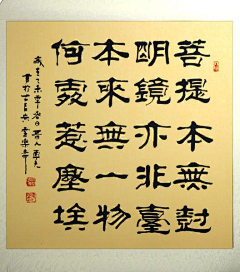 菩提本無尌
眀鏡亦非臺
本來無一物
何處惹塵埃